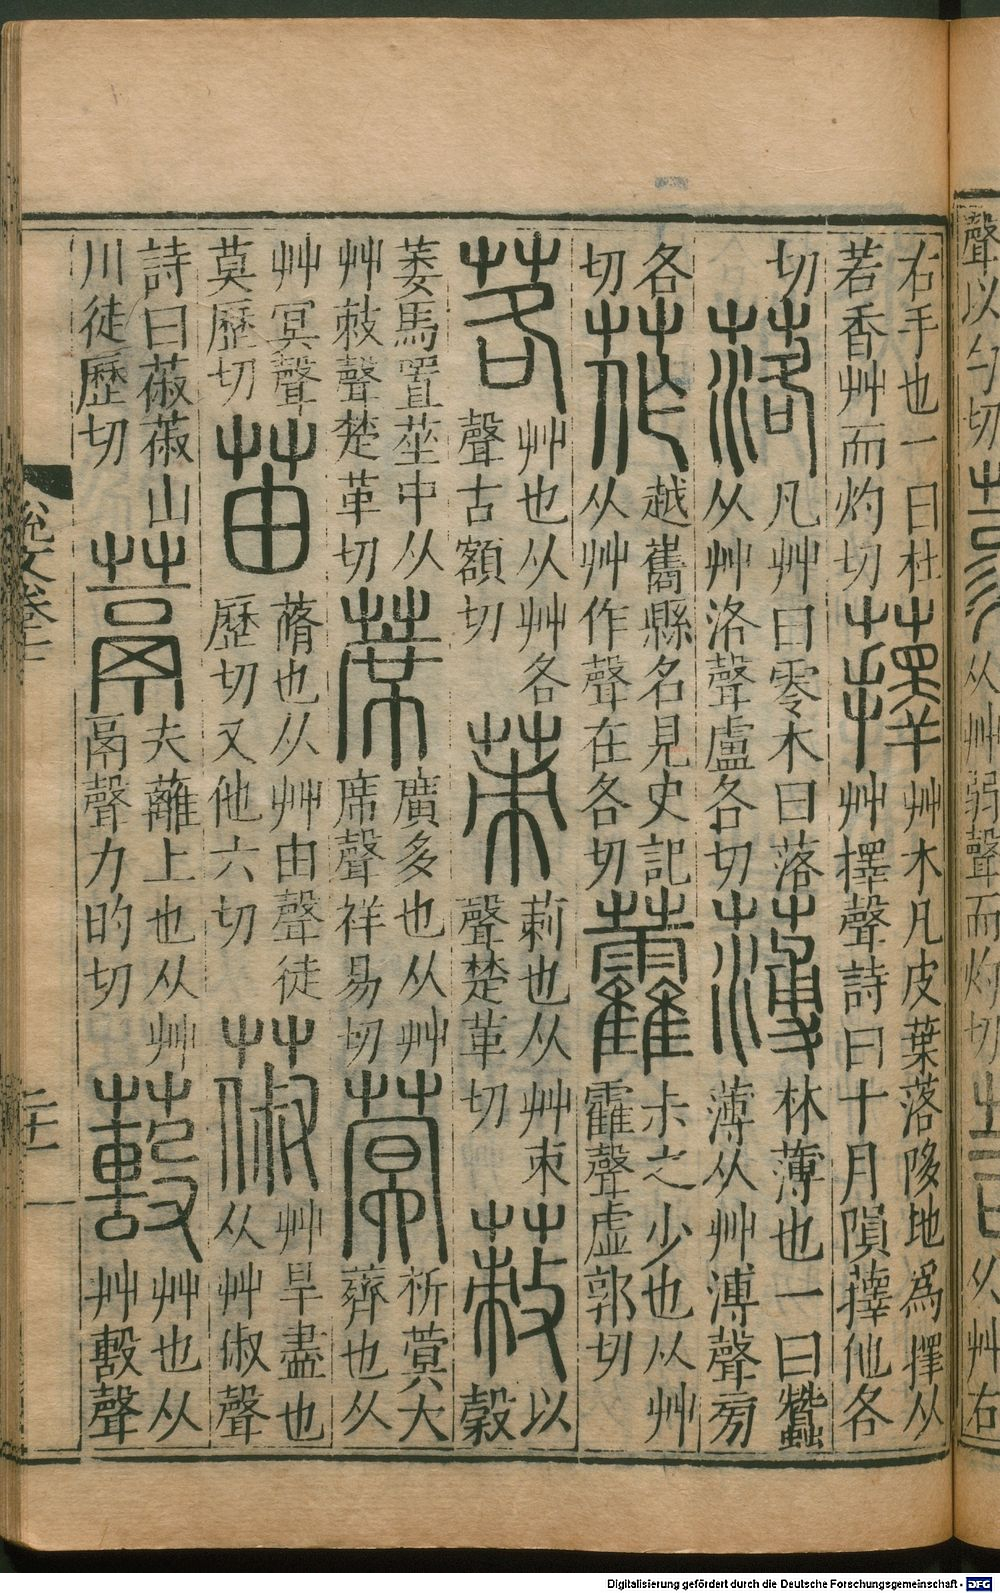 聲以勺切从艸弱聲而灼切从艸右
右手也一曰杜若香艸而灼切蘀艸木凡皮葉落陊地為擇从艸擇聲詩曰十月隕蘀他各
切落凡艸曰零木曰落从艸洛聲盧各切薄林薄也一曰蠶薄从艸溥聲旁
各切莋越巂縣名見史記从艸作聲在各切藿尗之少也从艸靃聲虛郭切
茖艸也从艸各聲古額切茦莿也从艸朿聲楚革切蓛以穀
萎馬置莝中从艸敕聲楚革切蓆廣多也从艸席聲祥易切蓂析蓂大薺也从
艸冥聲莫歷切苖蓨也从艸由聲徒歷切又他六切蔋艸旱盡也从艸俶聲
詩曰蔋蔋山川徒歷切蒚夫蘺上也从艸鬲聲力的切艸也从艸毄聲
說文卷二
二十一
Digitalisierung gefördert durch die Deutsche Forschungsgemeinschaft - DFG